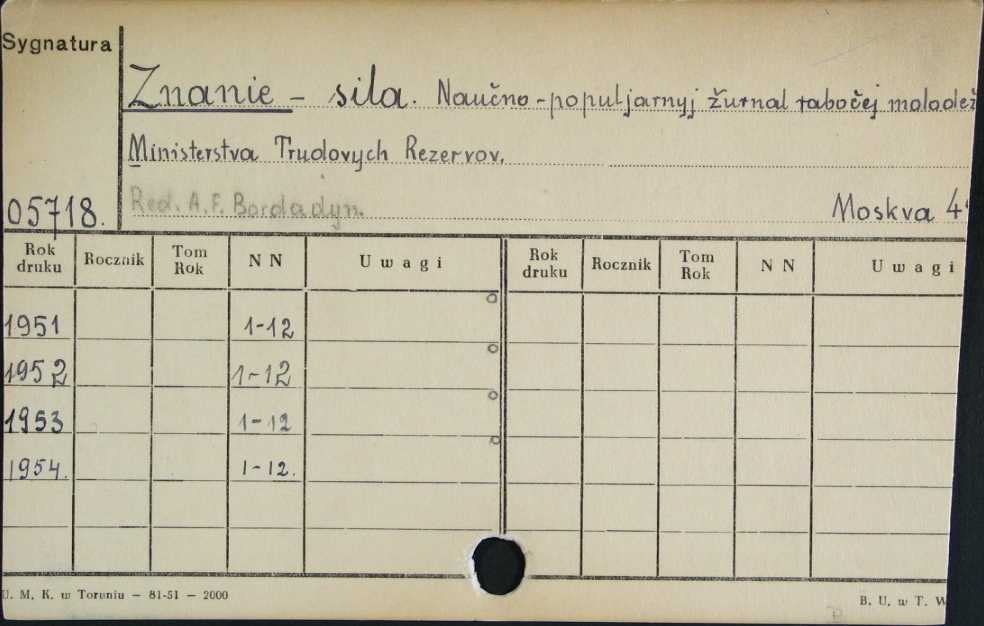 Sygnatura
Znanie - sila. Naučno-populjarnyj žurnal rabočej molodež
Ministerstva Trudovych Rezervov.
05718. Red. A. F. Bordadyn. Moskva 4°
Rok druku Rocznik Tom Rok N N Uwagi Rok druku Rocznik Tom Rok N N Uwagi
1951 1-12
1952 1-12
1953 1-12
1954. 1-12.
U. M. K. w Toruniu — 81-51 — 2000 B. U. w T. W